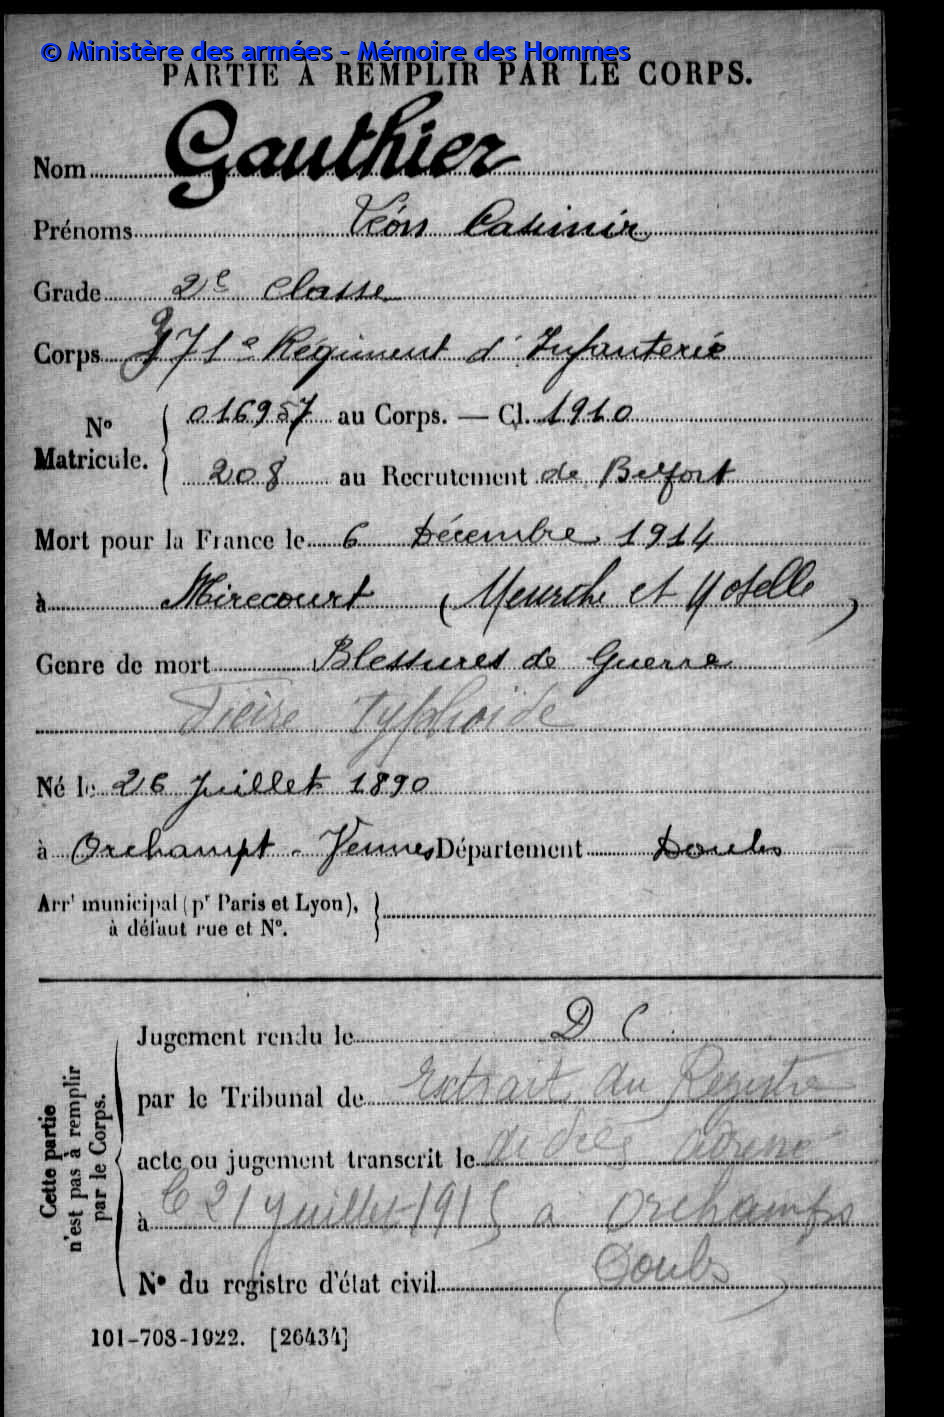 © Ministère des armées - Mémoire des Hommes
PARTIE À REMPLIR PAR LE CORPS.
Nom Gauthier
Prénoms Léon Casimir
Grade 2e Classe
Corps 371e Régiment d'Infanterie
No Matricule. 016957 au Corps. — Cl. 1910
208 au Recrutement de Belfort
Mort pour la France le 6 Décembre 1914
à Mirecourt (Meurthe et Moselle)
Genre de mort Blessures de Guerre
Fièvre Typhoïde
Né le 26 Juillet 1890
à Orchampt - Vennes Département Doubs
Arrt municipal (pr Paris et Lyon),
à défaut rue et No.
Cette partie
n'est pas à remplir
par le Corps.
Jugement rendu le D C
par le Tribunal de Extrait du Registre
acte ou jugement transcrit le de décès adressé
à le 21 Juillet 1915 à Orchamps
No du registre d'état civil (Doubs)
101-708-1922. [26434]